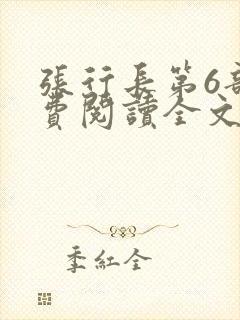 張行長第6部
費閱讀全文
季紅全